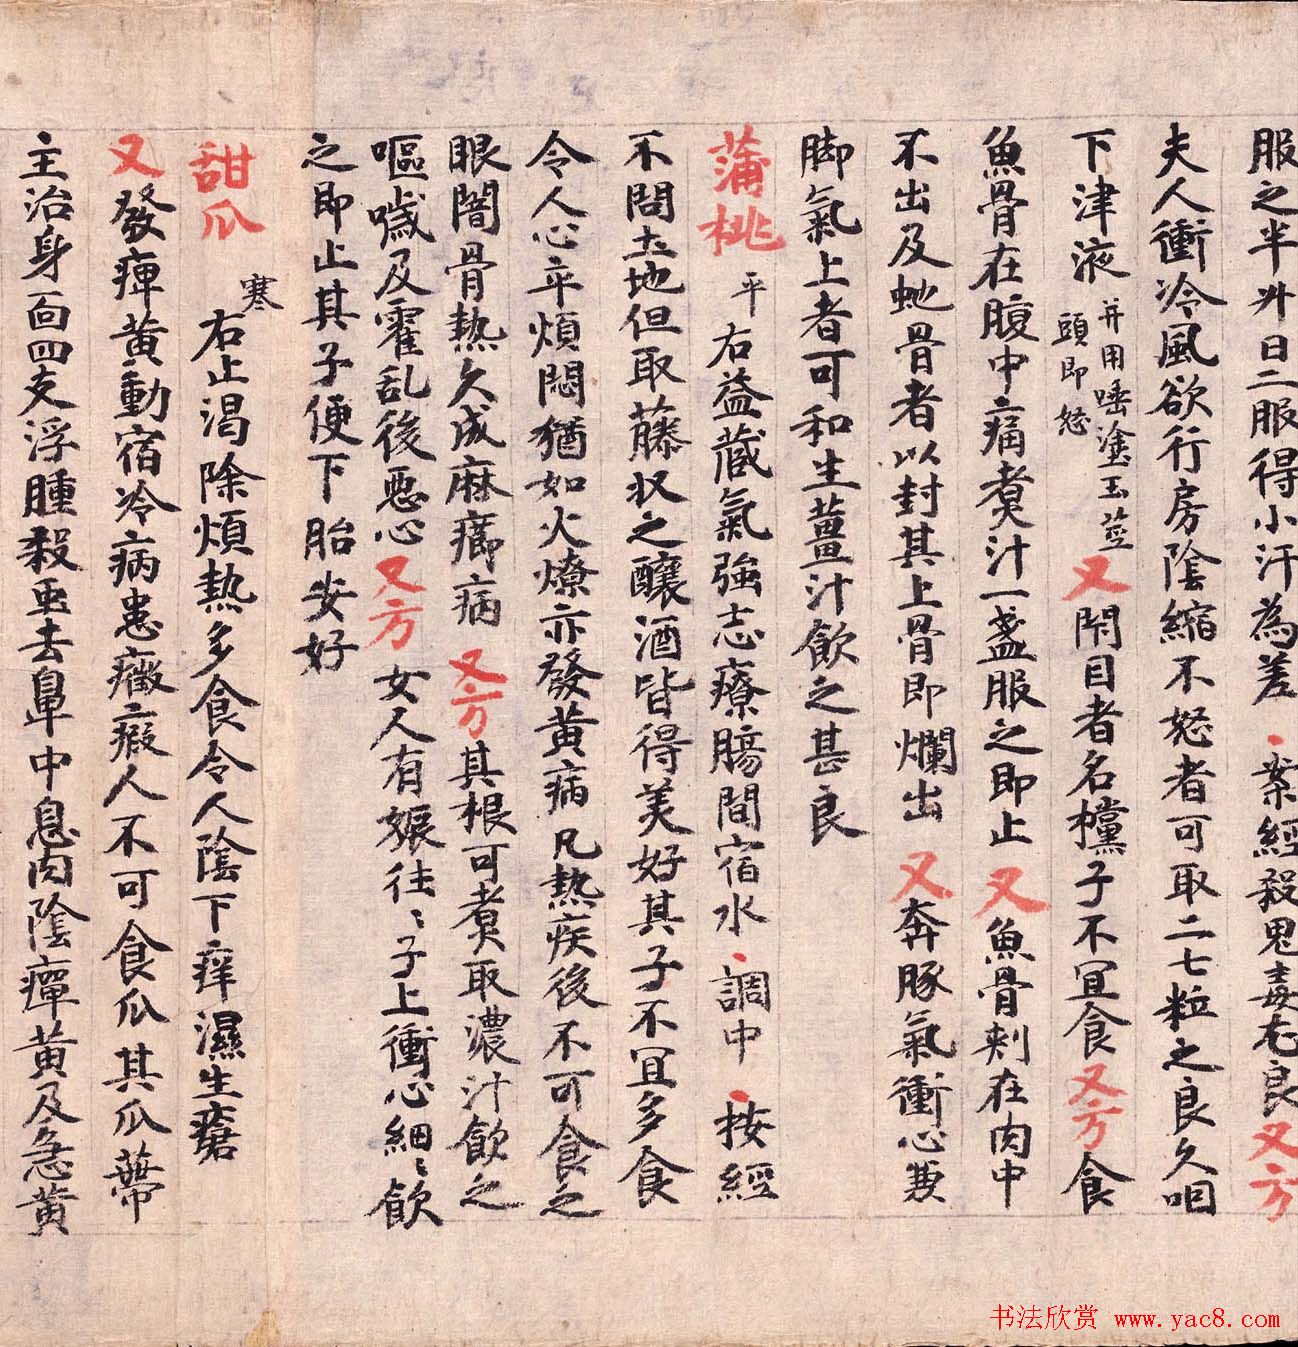 服之半升日二服得小汗為差·案經殺鬼毒尤良又方
夫人衝冷風欲行房陰縮不怒者可取二七粒之良久咽
下津液并用唾塗玉莖頭即怒又閇目者名欓子不冝食又方食
魚骨在腹中痛煑汁一盞服之即止又魚骨刾在肉中
不出及虵骨者以封其上骨即爛出又奔豚氣衝心兼
脚氣上者可和生薑汁飲之甚良
蒲桃平右益藏氣強志療腸間宿水·調中·按經
不問土地但取藤收之釀酒皆得美好其子不冝多食
令人心卒煩悶猶如火燎亦發黃病凡熱疾後不可食之
眼闇骨熱久成麻癤病又方其根可煑取濃汁飲之
嘔噦及霍乱後惡心又方女人有娠往〻子上衝心細〻飲
之即止其子便下胎安好
甜瓜寒右止渴除煩熱多食令人陰下痒濕生瘡
又發痺黃動宿冷病患癥瘕人不可食瓜其瓜蔕
主治身面四支浮腫殺蟲去鼻中息肉陰癉黃及急黃
书法欣赏 www.yac8.com